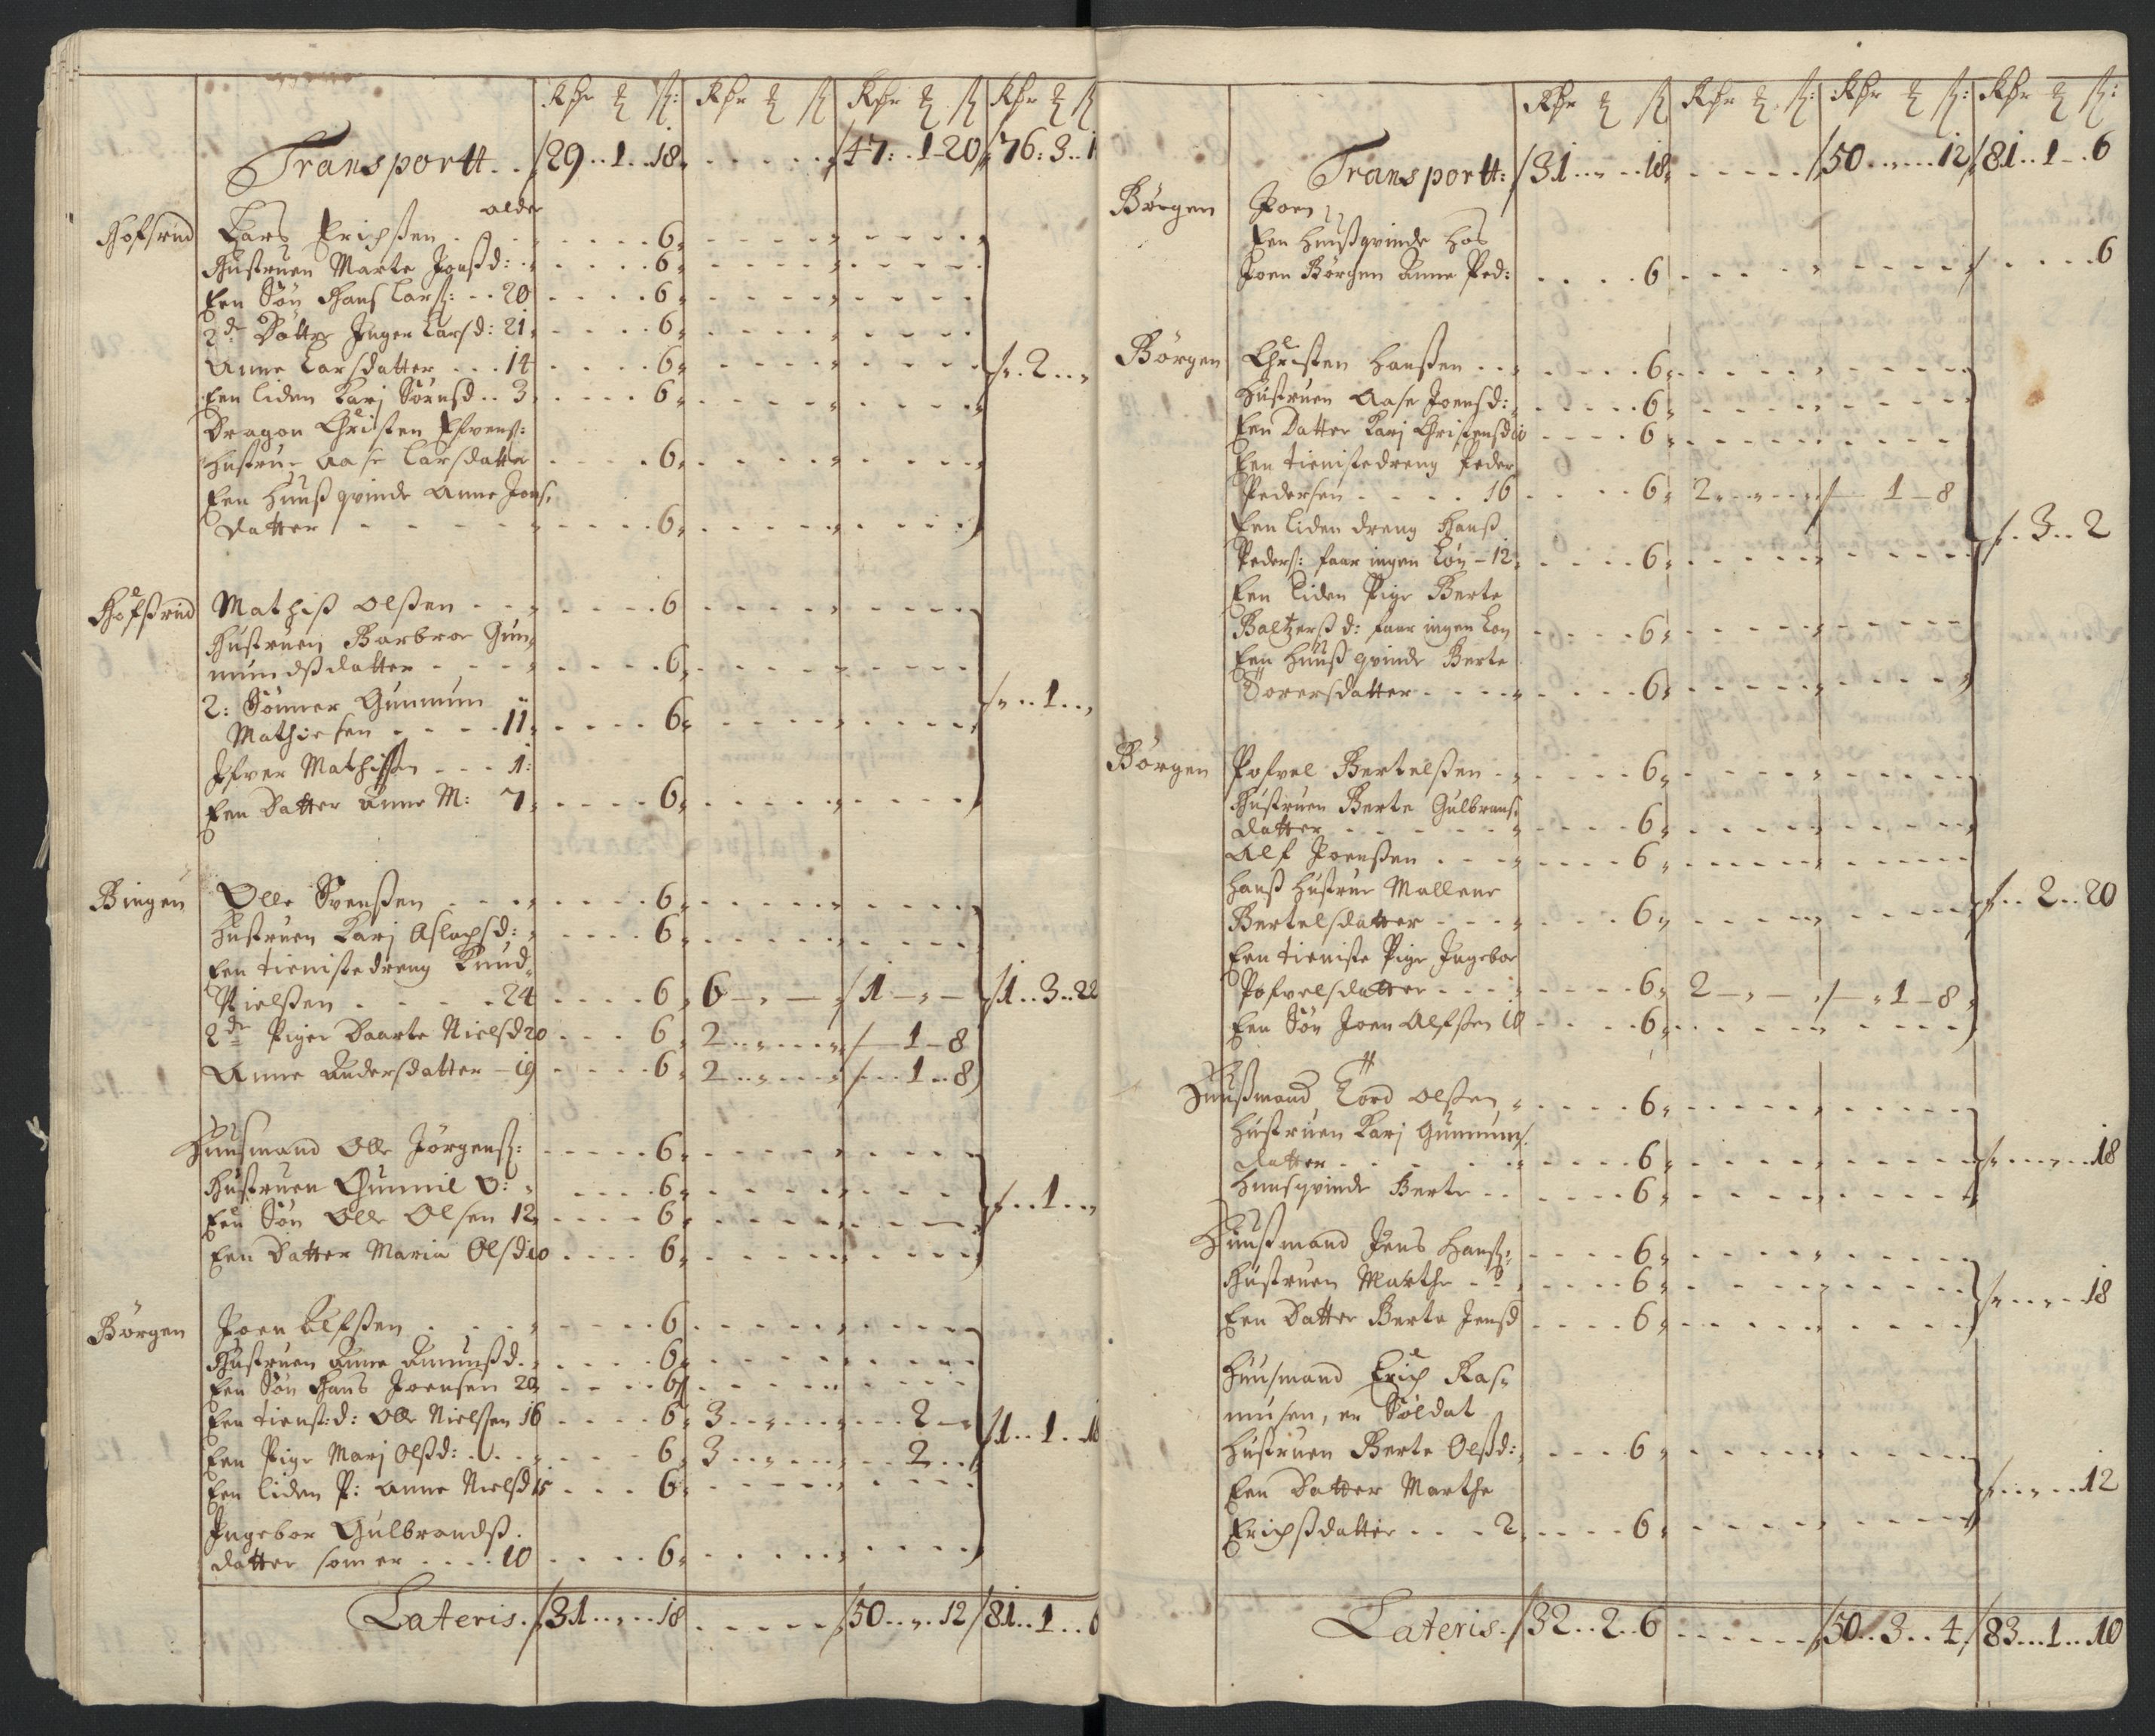 Rdr ₰ ß: Rdr ₰ ß Rdr ₰ ß Rdr ₰ ß
Transportt . . 29 . . 1 . . 18 . . . . . 47 : . 1 - 20 76 : 3 . . 1
alder
Hofsrud Lars Erichsen . . . 6
Hustruen Marte Jonsd: . . 6
Een Søn Hans Larsß: . . 20 . . 6
2de Døttre Inger Larsd: 21 . . 6
Anne Larsdatter . . . 14 . . 6 2 . .
Een liden Karj Sørnsd . . 3 . . 6
Dragon Christen Efvensß:
Hustrue Aase Larsdatter . . 6
Een Huußqvinde Anne Jons
datter . . . 6
Hofsrud Mathiß Olßen . . . 6
Hustruen Barbroe Gun
mundsdatter . . . 6
2: Sønner Gunmun 1 . .
Mathiesen . . . 11 . . 6
Ifver Mathissen . . . 1:
Een Datter Anne M: 7 . . 6
Bingen Olle Svenßen . . . 6
Hustruen Karj Aslachsd: . . 6
Een tienistedreng Knud
Nielßen . . . 24 . . 6 6 - - 1 - - 1 . . 3 . . 22
2de Piger Baarte Nielsd 20 . . 6 2 . . . - 1 - 8
Anne Andersdatter - 19 . . 6 2 . . . . . 1 . . 8
Huusmand Olle Jørgensß: . . 6
Hustruen Gunnil O: . . 6 1 . .
Een Søn Olle Olsen 12 . . 6
Een Datter Maria Olsd 10 . . 6
Børgen Joen Alfßen . . . 6
Hustruen Anne Amunßd . . 6
Een Søn Hans Joensen 20 . . 6
Een tienist: d: Olle Nielßen 16 . . 6 3 . . . . . 2 - 1 . . 1 . . 18
Een Pige Marj Olßd: . . . 6 3 . . . . . 2 . .
Een liden P: Anne Nielsd 15 . . 6
Ingebor Gulbrandß.
datter som er . . . 10 . . 6
Lateris . 31 . . „ . . 18 . . . . . 50 . . „ . 12 81 . . 1 . . 6
Rdr ₰ ß Rdr ₰ ß: Rdr ₰ ß: Rdr ₰ ß:
Transportt: 31 . . „ . . 18 . . . . . 50 . . „ . . . 12 81 . . 1 - . 6
Børgen Joen
Een Huußqvinde hos 6
Joen Børgen Anne Ped: . . . 6
Børgen Christen Hanßen . . . 6
Hustruen Aase Joensd: . . 6
Een Datter Karj Christensd 10 . . 6
Een tienistedreng Peder
Pedersen . . . . 16 . . 6 2 . . . - 1 - 8
Een liden dreng Hanß 3 . . 2
Peders: faar ingen Løn - 12 . . 6
Een liden Pige Berte
Baltzerßd: faar ingen Løn . . 6
Een Huußqvinde Berte
Torersdatter . . . . 6
Børgen Pofvel Bertelßen . . . 6
Hustruen Berte Gulbrans
datter . . . 6
Alf Joenßen . . . 6
Hanß Hustrue Mallene 2 . . 20
Bertelsdatter . . . 6
Een tieniste Pige Ingebor
Pofvelsdatter . . . 6 2 - - - 1 - 8
Een Søn Joen Alfßen 10 . . 6
Huußmand Tord Olßen . . 6
Hustruen Karj Gunmuns
datter . . . 6 18
Huusqvinde Berte . . . 6
Huußmand Jens Hansß: . . 6
Hustruen Marthe . . . 6 18
Een Datter Berte Jensd . . 6
Huusmand Erich Ras
musen, er Soldat
Hustruen Berte Olßd: . . 6
Een Datter Marthe 12
Erichßdatter . . . 2 . . 6
Lateris . 32 . . 2 . . 6 . . . . . 50 . . 3 . . 4 83 . . . 1 . . 10